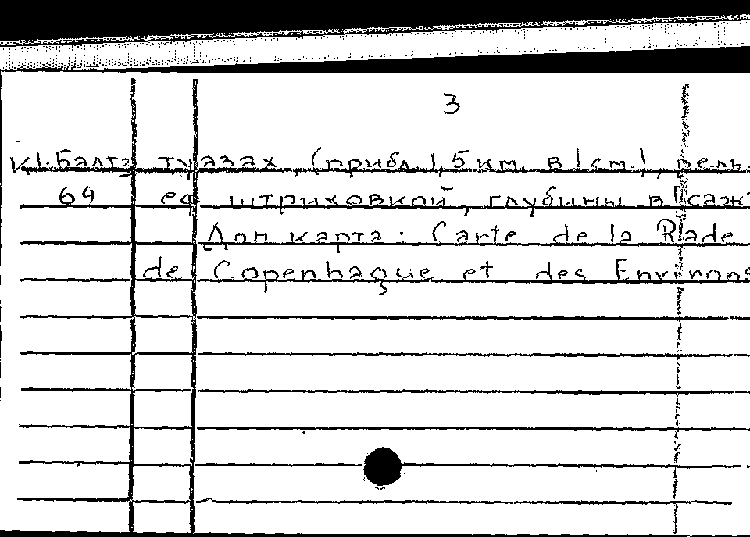 3
К1.Балт2 туазах, (прибл 1,5 км. в 1 см.), рель
64 еф штриховкой, глубины в саж
Доп карта: Carte de la Rade
de Copenhague et des Environs